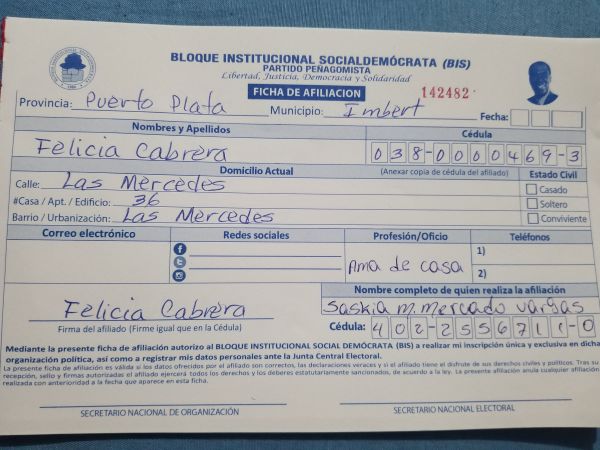 BLOQUE INSTITUCIONAL SOCIALDEMÓCRATA (BIS)
PARTIDO PEÑAGOMISTA
Libertad, Justicia, Democracia y Solidaridad
FICHA DE AFILIACION
142482
Provincia: Puerto Plata Municipio: Imbert Fecha:
Nombres y Apellidos Cédula
Felicia Cabrera 038-0000469-3
Domicilio Actual (Anexar copia de cédula del afiliado) Estado Civil
Calle: Las Mercedes Casado
#Casa / Apt. / Edificio: 36 Soltero
Barrio / Urbanización: Las Mercedes Conviviente
Correo electrónico Redes sociales Profesión/Oficio Teléfonos
1)
Ama de casa 2)
Nombre completo de quien realiza la afiliación
Felicia Cabrera Saskia m. mercado vargas
Firma del afiliado (Firme igual que en la Cédula) Cédula: 402-2556711-0
Mediante la presente ficha de afiliación autorizo al BLOQUE INSTITUCIONAL SOCIAL DEMÓCRATA (BIS) a realizar mi inscripción única y exclusiva en dicha
organización política, así como a registrar mis datos personales ante la Junta Central Electoral.
La presente ficha de afiliación es válida si los datos ofrecidos por el afiliado son correctos, las declaraciones veraces y si el afiliado tiene el disfrute de sus derechos civiles y políticos. Tras su
recepción, sello y firmas autorizadas el afiliado ejercerá todos los derechos y los deberes estatutariamente sancionados, de acuerdo a la ley. La presente afiliación anula cualquier afiliación
realizada con anterioridad a la fecha que aparece en esta ficha.
SECRETARIO NACIONAL DE ORGANIZACIÓN SECRETARIO NACIONAL ELECTORAL